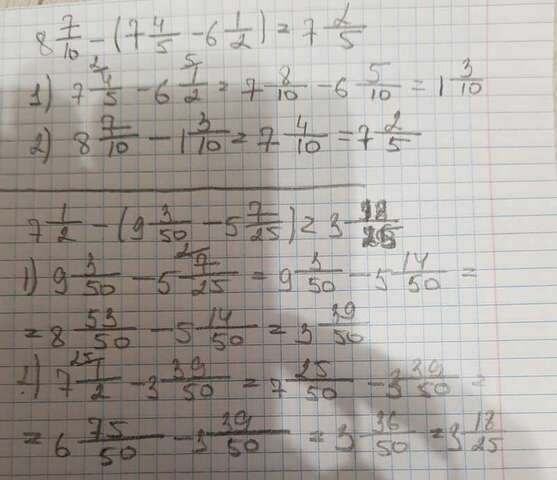 8 7/10 - (7 4/5 - 6 1/2) = 7 2/5
1) 7 4/5 - 6 1/2 = 7 8/10 - 6 5/10 = 1 3/10
2) 8 7/10 - 1 3/10 = 7 4/10 = 7 2/5
7 1/2 - (9 3/50 - 5 7/25) = 3 18/25
1) 9 3/50 - 5 7/25 = 9 3/50 - 5 14/50 =
= 8 53/50 - 5 14/50 = 3 39/50
2) 7 1/2 - 3 39/50 = 7 25/50 - 3 39/50 =
= 6 75/50 - 3 39/50 = 3 36/50 = 3 18/25